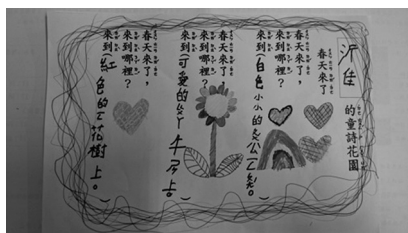 沂佳的童詩花園
春天來了
春天來了，
來到哪裡？
來到(白色小小的
春天來了，
來到哪裡？
來到(可愛的
春天來了，
來到哪裡？
來到(紅色的花樹上。)